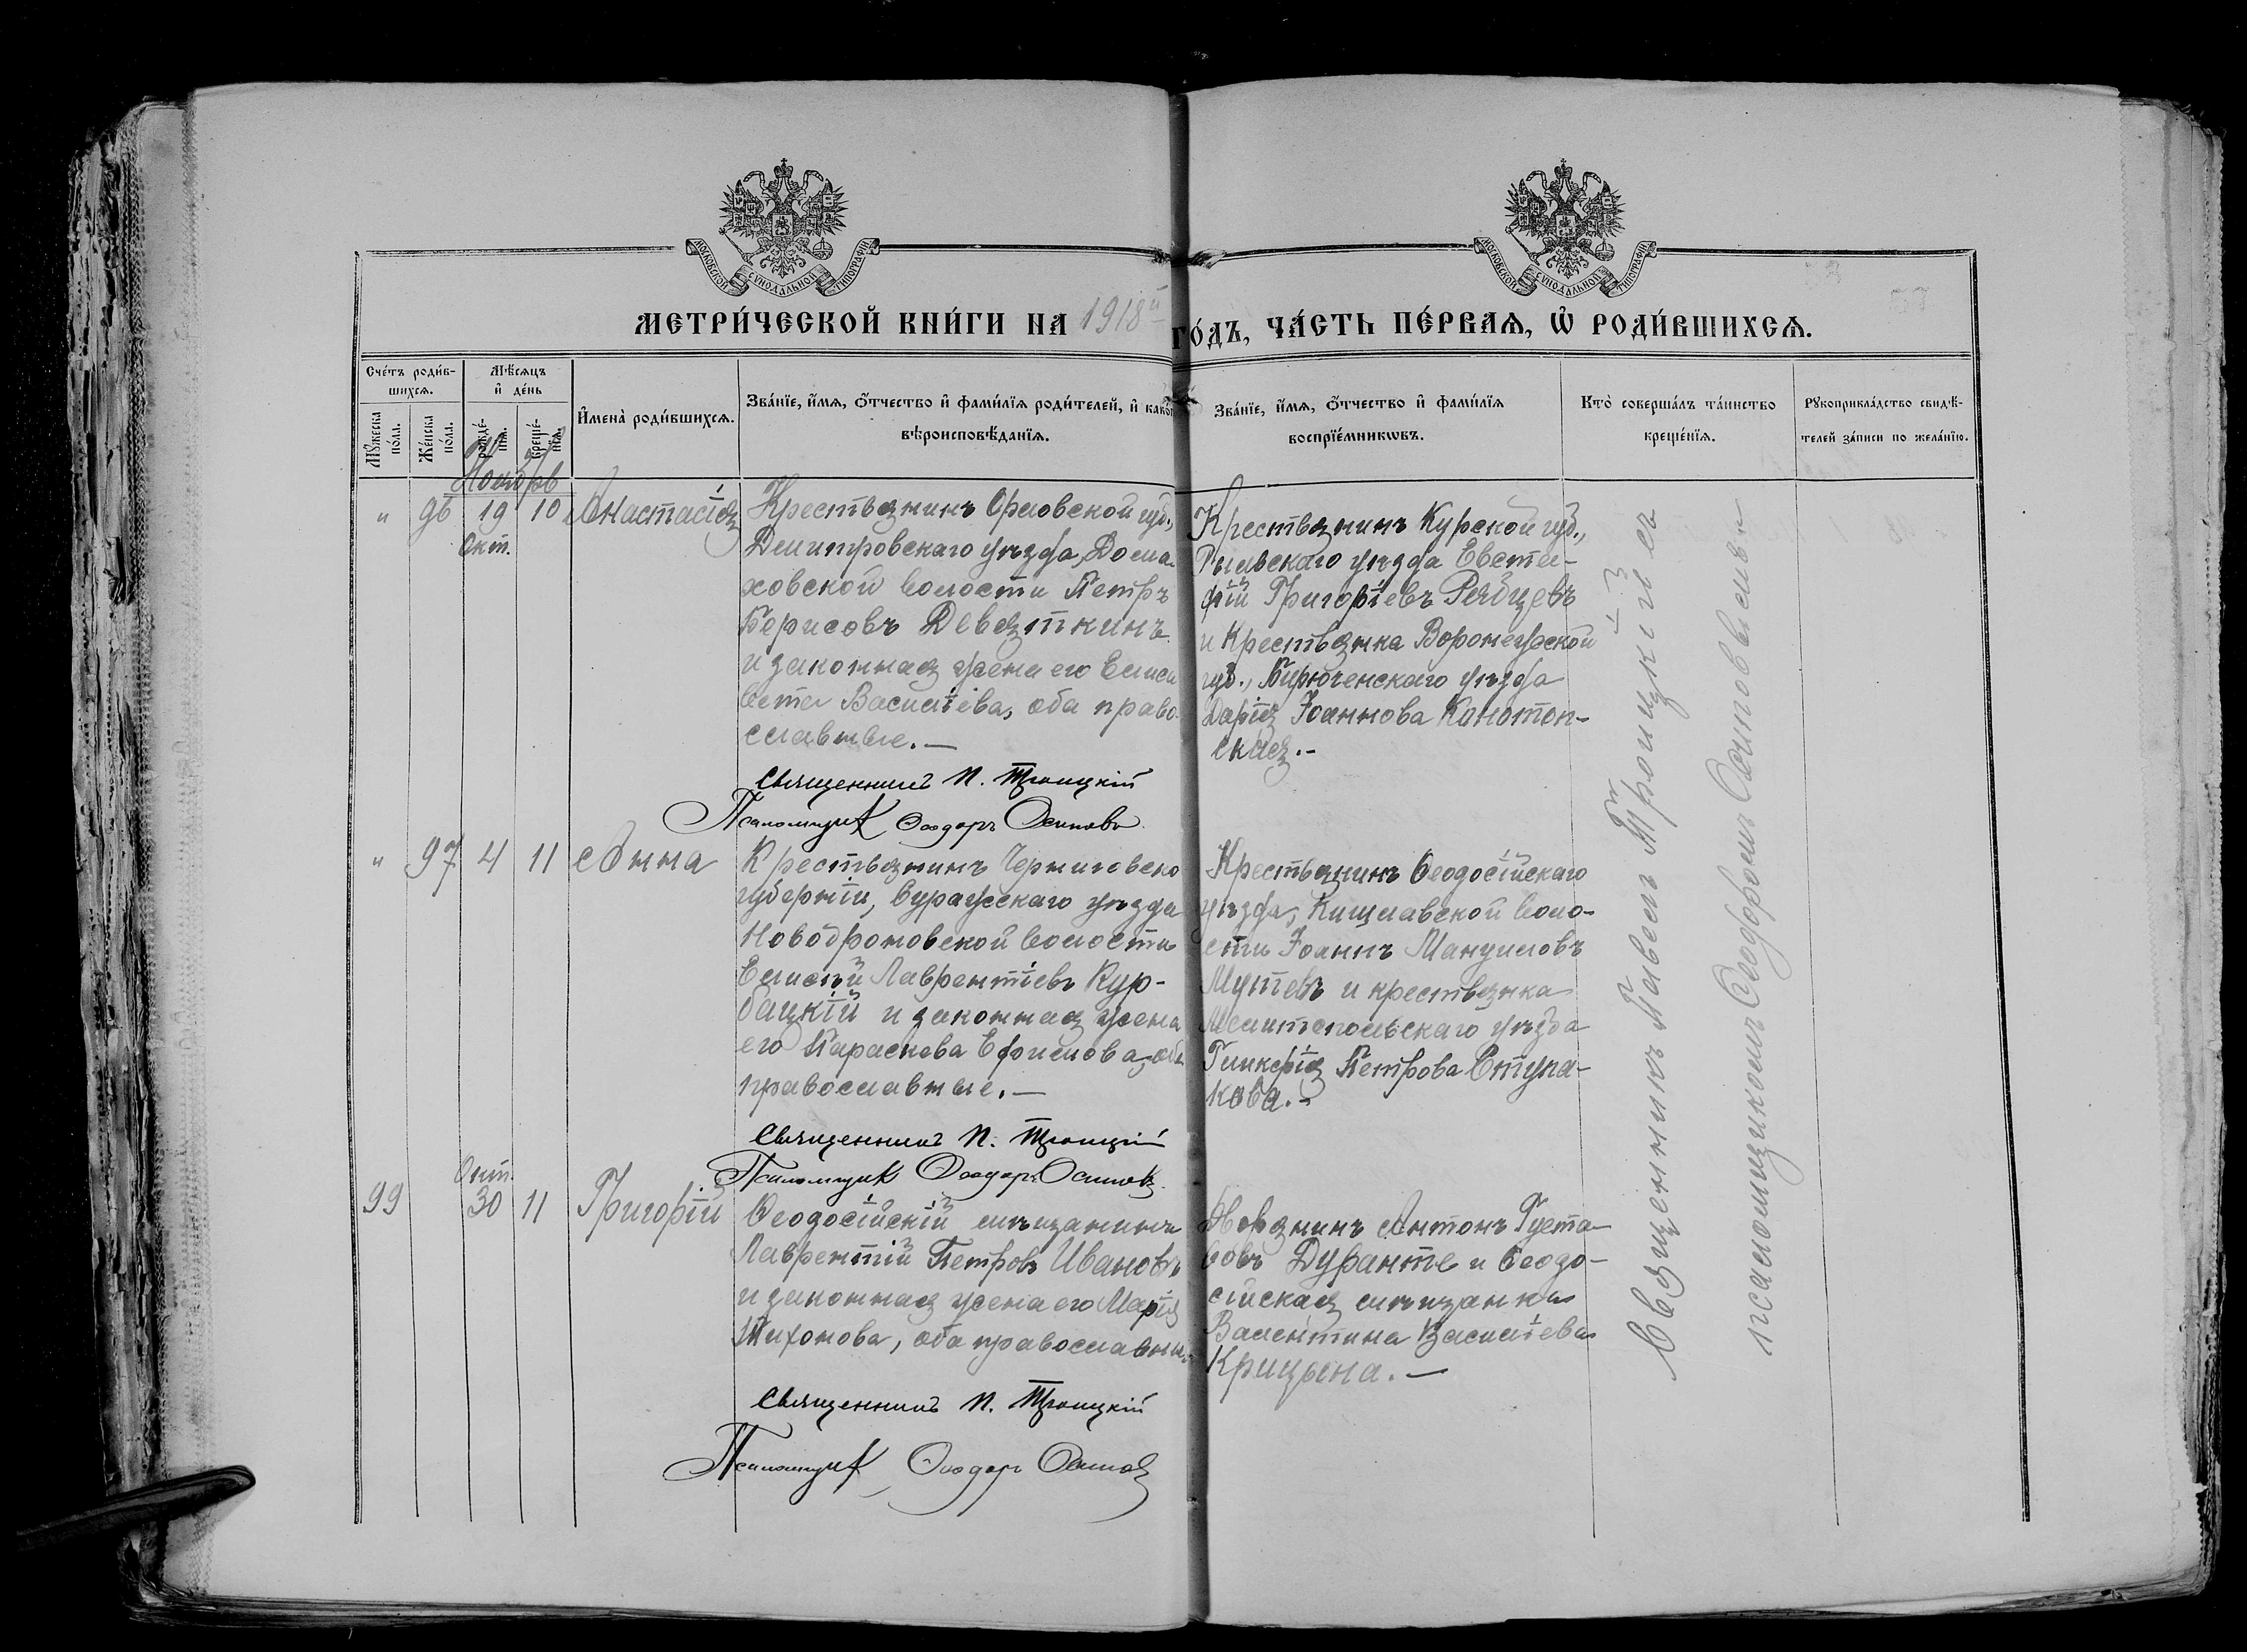 МОСКОВСКОЙ СѴНОДАЛЬНОЙ ТИПОГРАФІИ
МОСКОВСКОЙ СѴНОДАЛЬНОЙ ТИПОГРАФІИ
МЕТРИ́ЧЕСКОЙ КНИ́ГИ НА 1918й ГО́ДЪ, ЧА́СТЬ ПЕ́РВАѦ, Ѡ҆ РОДИ́ВШИХСѦ.
Сче́тъ роди́в-
шихсѧ.
Мꙋ́жеска по́ла.
Же́нска по́ла.
Мѣ́сѧцъ
и҆ де́нь
рожде́-
нїѧ.
креще́-
нїѧ.
И҆мена̀ роди́вшихсѧ.
Зва́нїе, и҆́мѧ, ѻ҆́тчество и҆ фами́лїѧ роди́телей, и҆ како́г
вѣроисповѣ́данїѧ.
Зва́нїе, и҆́мѧ, ѻ҆́тчество и҆ фами́лїѧ
воспрїе́мникѡвъ.
Кто̀ соверша́лъ та́инство
креще́нїѧ.
Рꙋкоприкла́дство свидѣ́-
телей за́писи по жела́нїю.
Ноябрь
" 96 19 10 Анастасія
Окт.
Крестьянинъ Орловской губ.,
Дмитровскаго уѣзда, Дома-
ховской волости Петръ
Борисовъ Девяткинъ
и законная жена его Елиса
вета Васильева, оба право-
славные.—
Священникъ П. Троицкій
Псаломщик Ѳеодоръ Осиповъ
Крестьянинъ Курской губ.,
Рыльскаго уѣзда Евста-
фій Григоріевъ Рябцевъ
и крестьянка Воронежской
губ., Бирюченскаго уѣзда
Дарія Іоаннова Конотоп-
ская.-
" 97 4 11 Анна
Крестьянинъ Черниговско
губерніи, Суражскаго уѣзда
Новодроковской волости
Елисѣй Лаврентіевъ Кур-
бацкій и законная жена
его Параскева Ефимова, оба
православные.—
Священникъ П. Троицкій
Псаломщик Ѳеодоръ Осиповъ
Крестьянинъ Ѳеодосійскаго
уѣзда, Кишлавской воло-
сти Іоаннъ Мануиловъ
и крестьянка
Мелитопольскаго уѣзда
Гликерія Петрова Ступа-
кова.-
99 Окт. 30 11 Григорій
Ѳеодосійскій мѣщанинъ
Лаврентій Петровъ Ивановъ
и законная жена его Марія
Тихонова, оба православны
Священникъ П. Троицкій
Псаломщик Ѳеодоръ Осиповъ
Дворянинъ Антонъ Густа-
вовъ Дуранте и Ѳеодо-
сійская мѣщанка
Валентина Васильева
Крицына.—
Священникъ Павелъ Троицкій съ
псаломщикомъ Ѳеодоромъ Осиповымъ